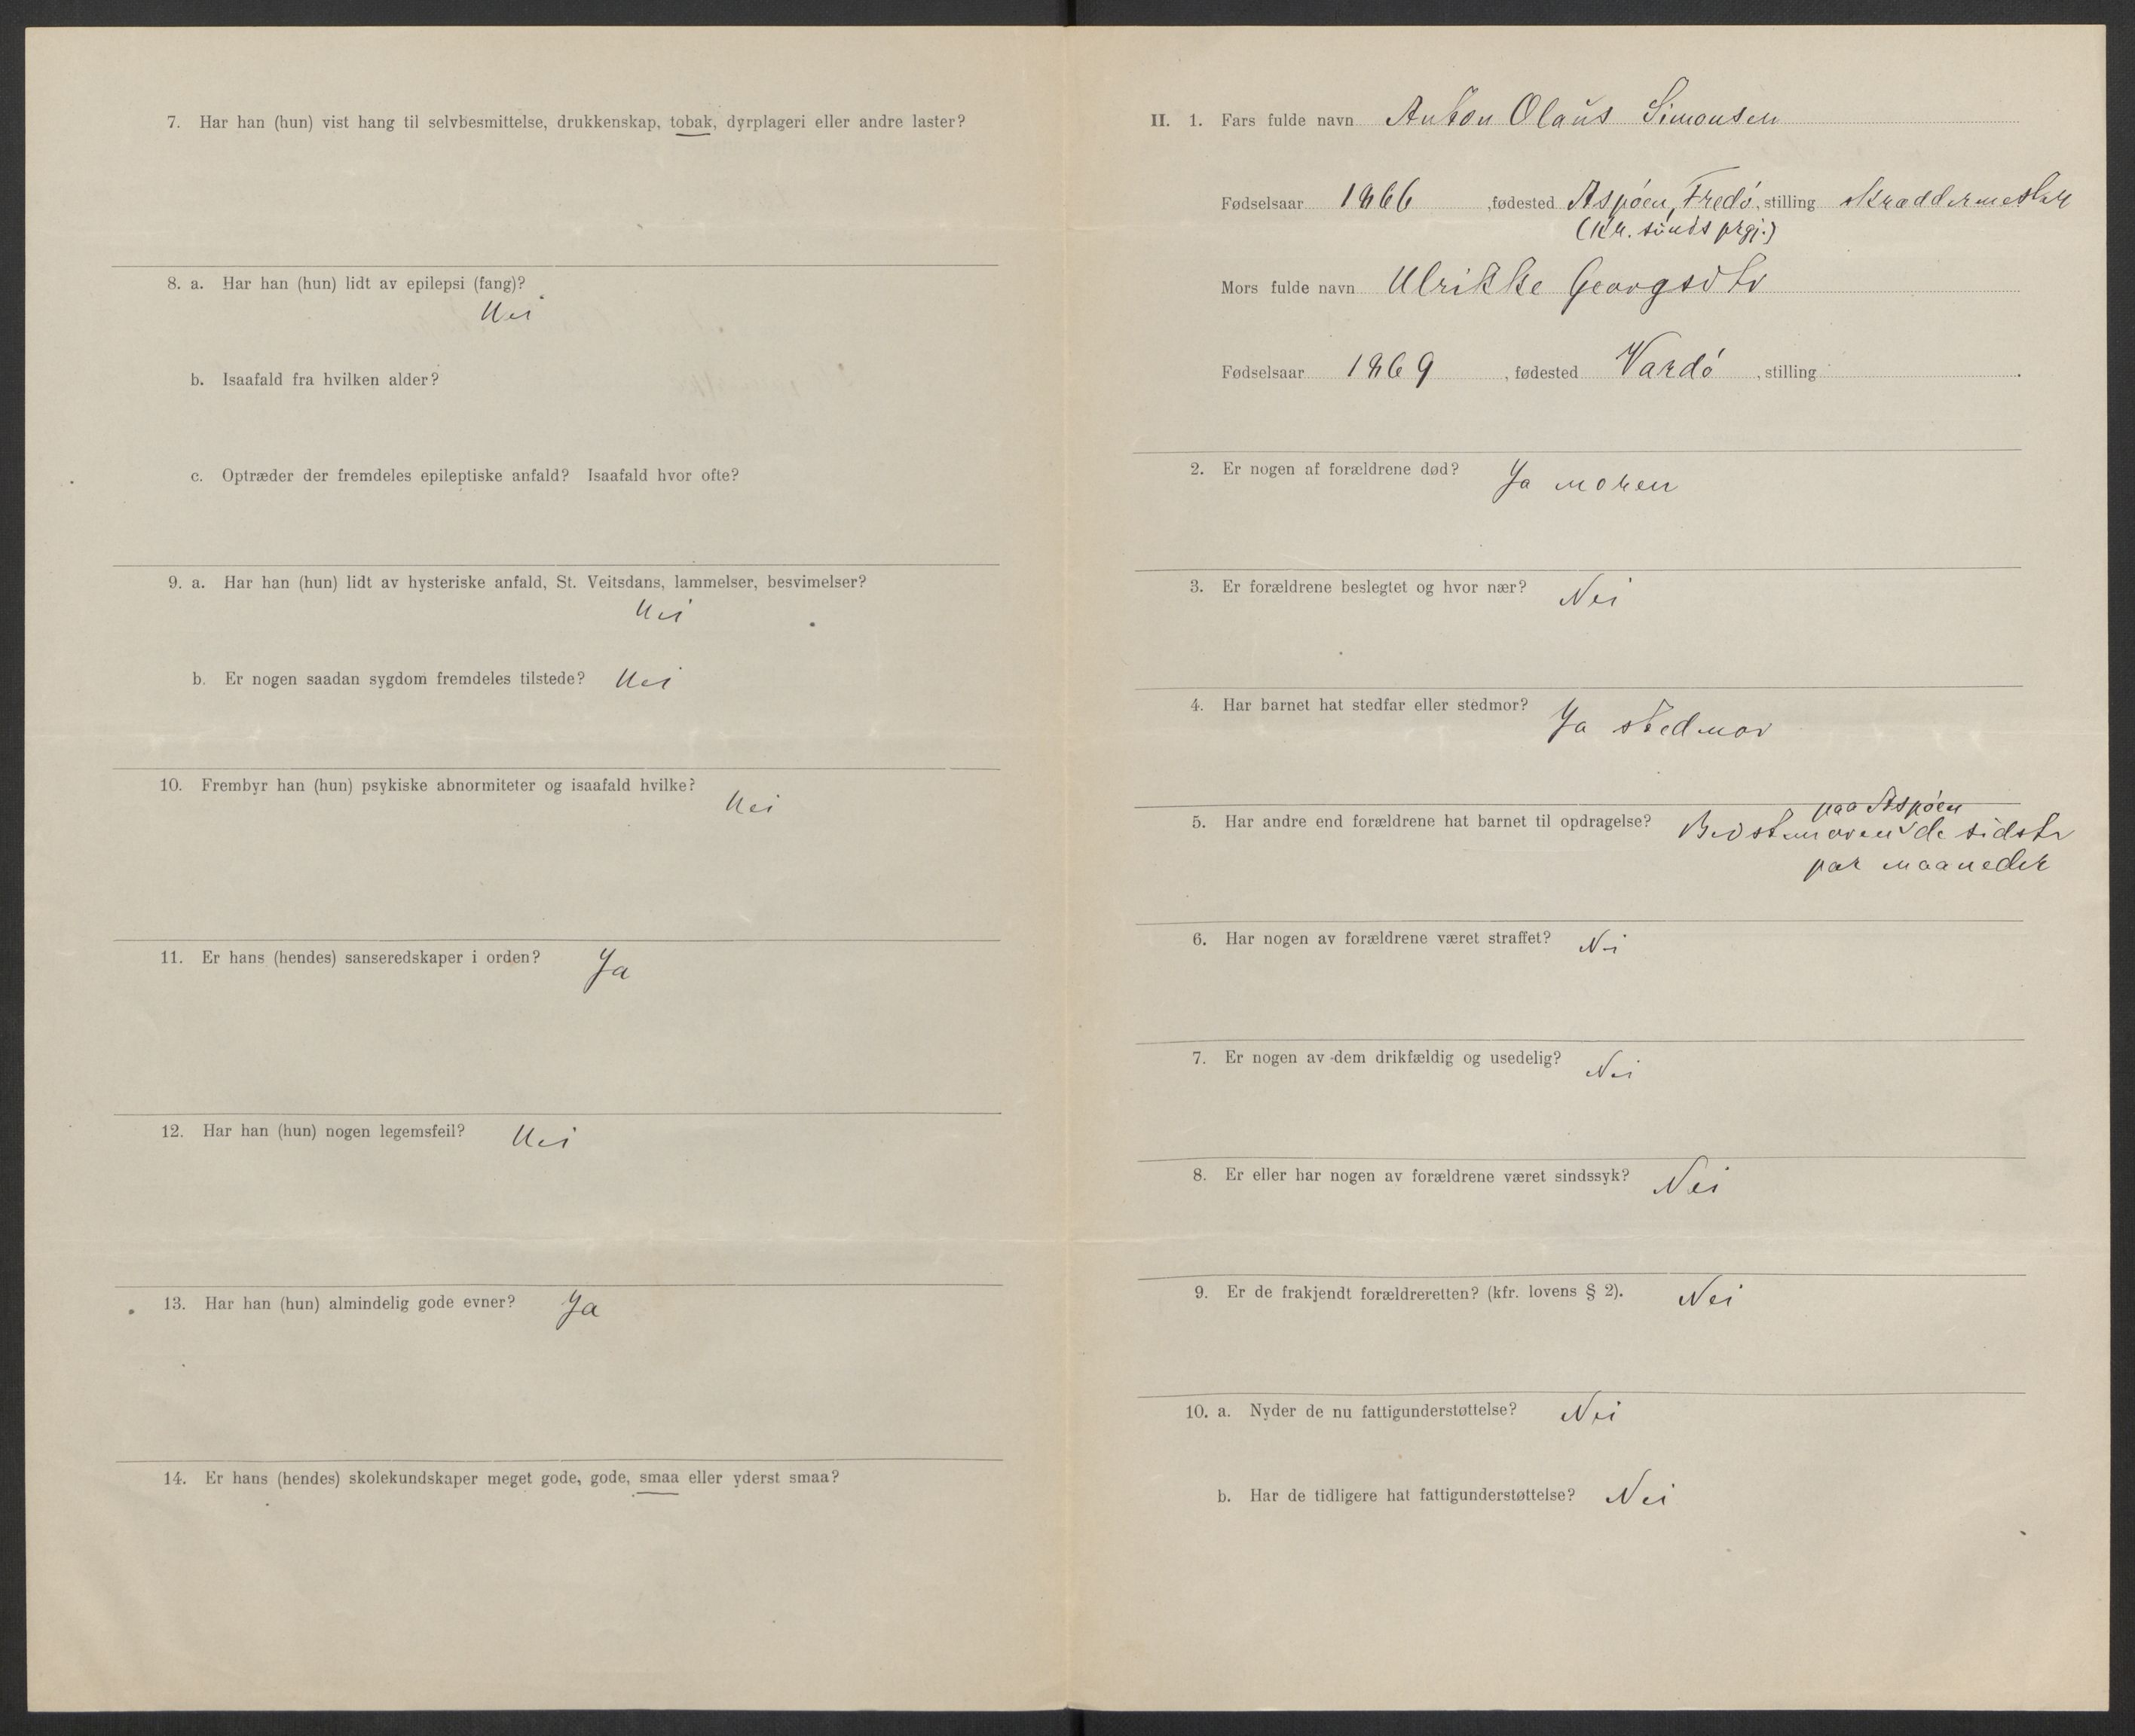 7. Har han (hun) vist hang til selvbesmittelse, drukkenskap, tobak, dyrplageri eller andre laster?
8. a. Har han (hun) lidt av epilepsi (fang)?
Nei
b. Isaafald fra hvilken alder?
c. Optræder der fremdeles epileptiske anfald? Isaafald hvor ofte?
9. a. Har han (hun) lidt av hysteriske anfald, St. Veitsdans, lammelser, besvimelser?
Nei
b. Er nogen saadan sygdom fremdeles tilstede? Nei
10. Frembyr han (hun) psykiske abnormiteter og isaafald hvilke?
Nei
11. Er hans (hendes) sanseredskaper i orden? Ja
12. Har han (hun) nogen legemsfeil? Nei
13. Har han (hun) almindelig gode evner? Ja
14. Er hans (hendes) skolekundskaper meget gode, gode, smaa eller yderst smaa?
II. 1. Fars fulde navn Anton Olaus Simonsen
Fødselsaar 1866, fødested Aspøen, Fredø, stilling skræddermester
(Kr. sunds prgj.)
Mors fulde navn Ulrikke Georgsdtr
Fødselsaar 1869, fødested Vardø, stilling .
2. Er nogen af forældrene død? Ja moren
3. Er forældrene beslegtet og hvor nær? Nei
4. Har barnet hat stedfar eller stedmor? Ja stedmor
paa Aspøen
5. Har andre end forældrene hat barnet til opdragelse? Bedstemoren de sidste
par maaneder
6. Har nogen av forældrene været straffet? Nei
7. Er nogen av dem drikfældig og usedelig? Nei
8. Er eller har nogen av forældrene været sindssyk? Nei
9. Er de frakjendt forældreretten? (kfr. lovens § 2). Nei
10. a. Nyder de nu fattigunderstøttelse? Nei
b. Har de tidligere hat fattigunderstøttelse? Nei